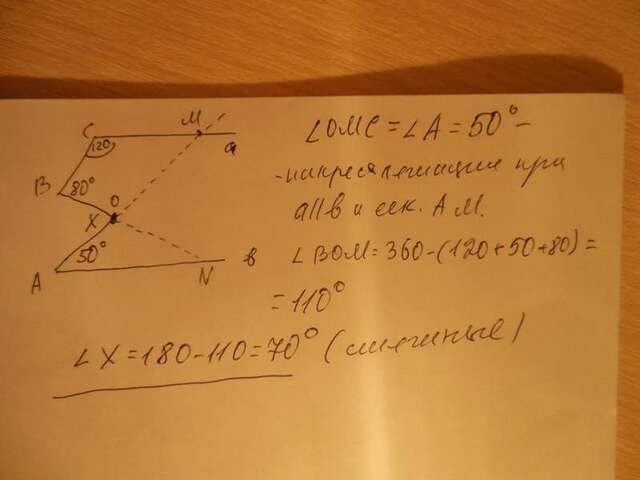 C
M
120
a
B
80°
O
X
50°
A
N
в
∠OMC = ∠A = 50° –
- накрест лежащие при
a||в и сек. AM.
∠BOM = 360-(120+50+80) =
= 110°
∠X = 180-110 = 70° (смежные)